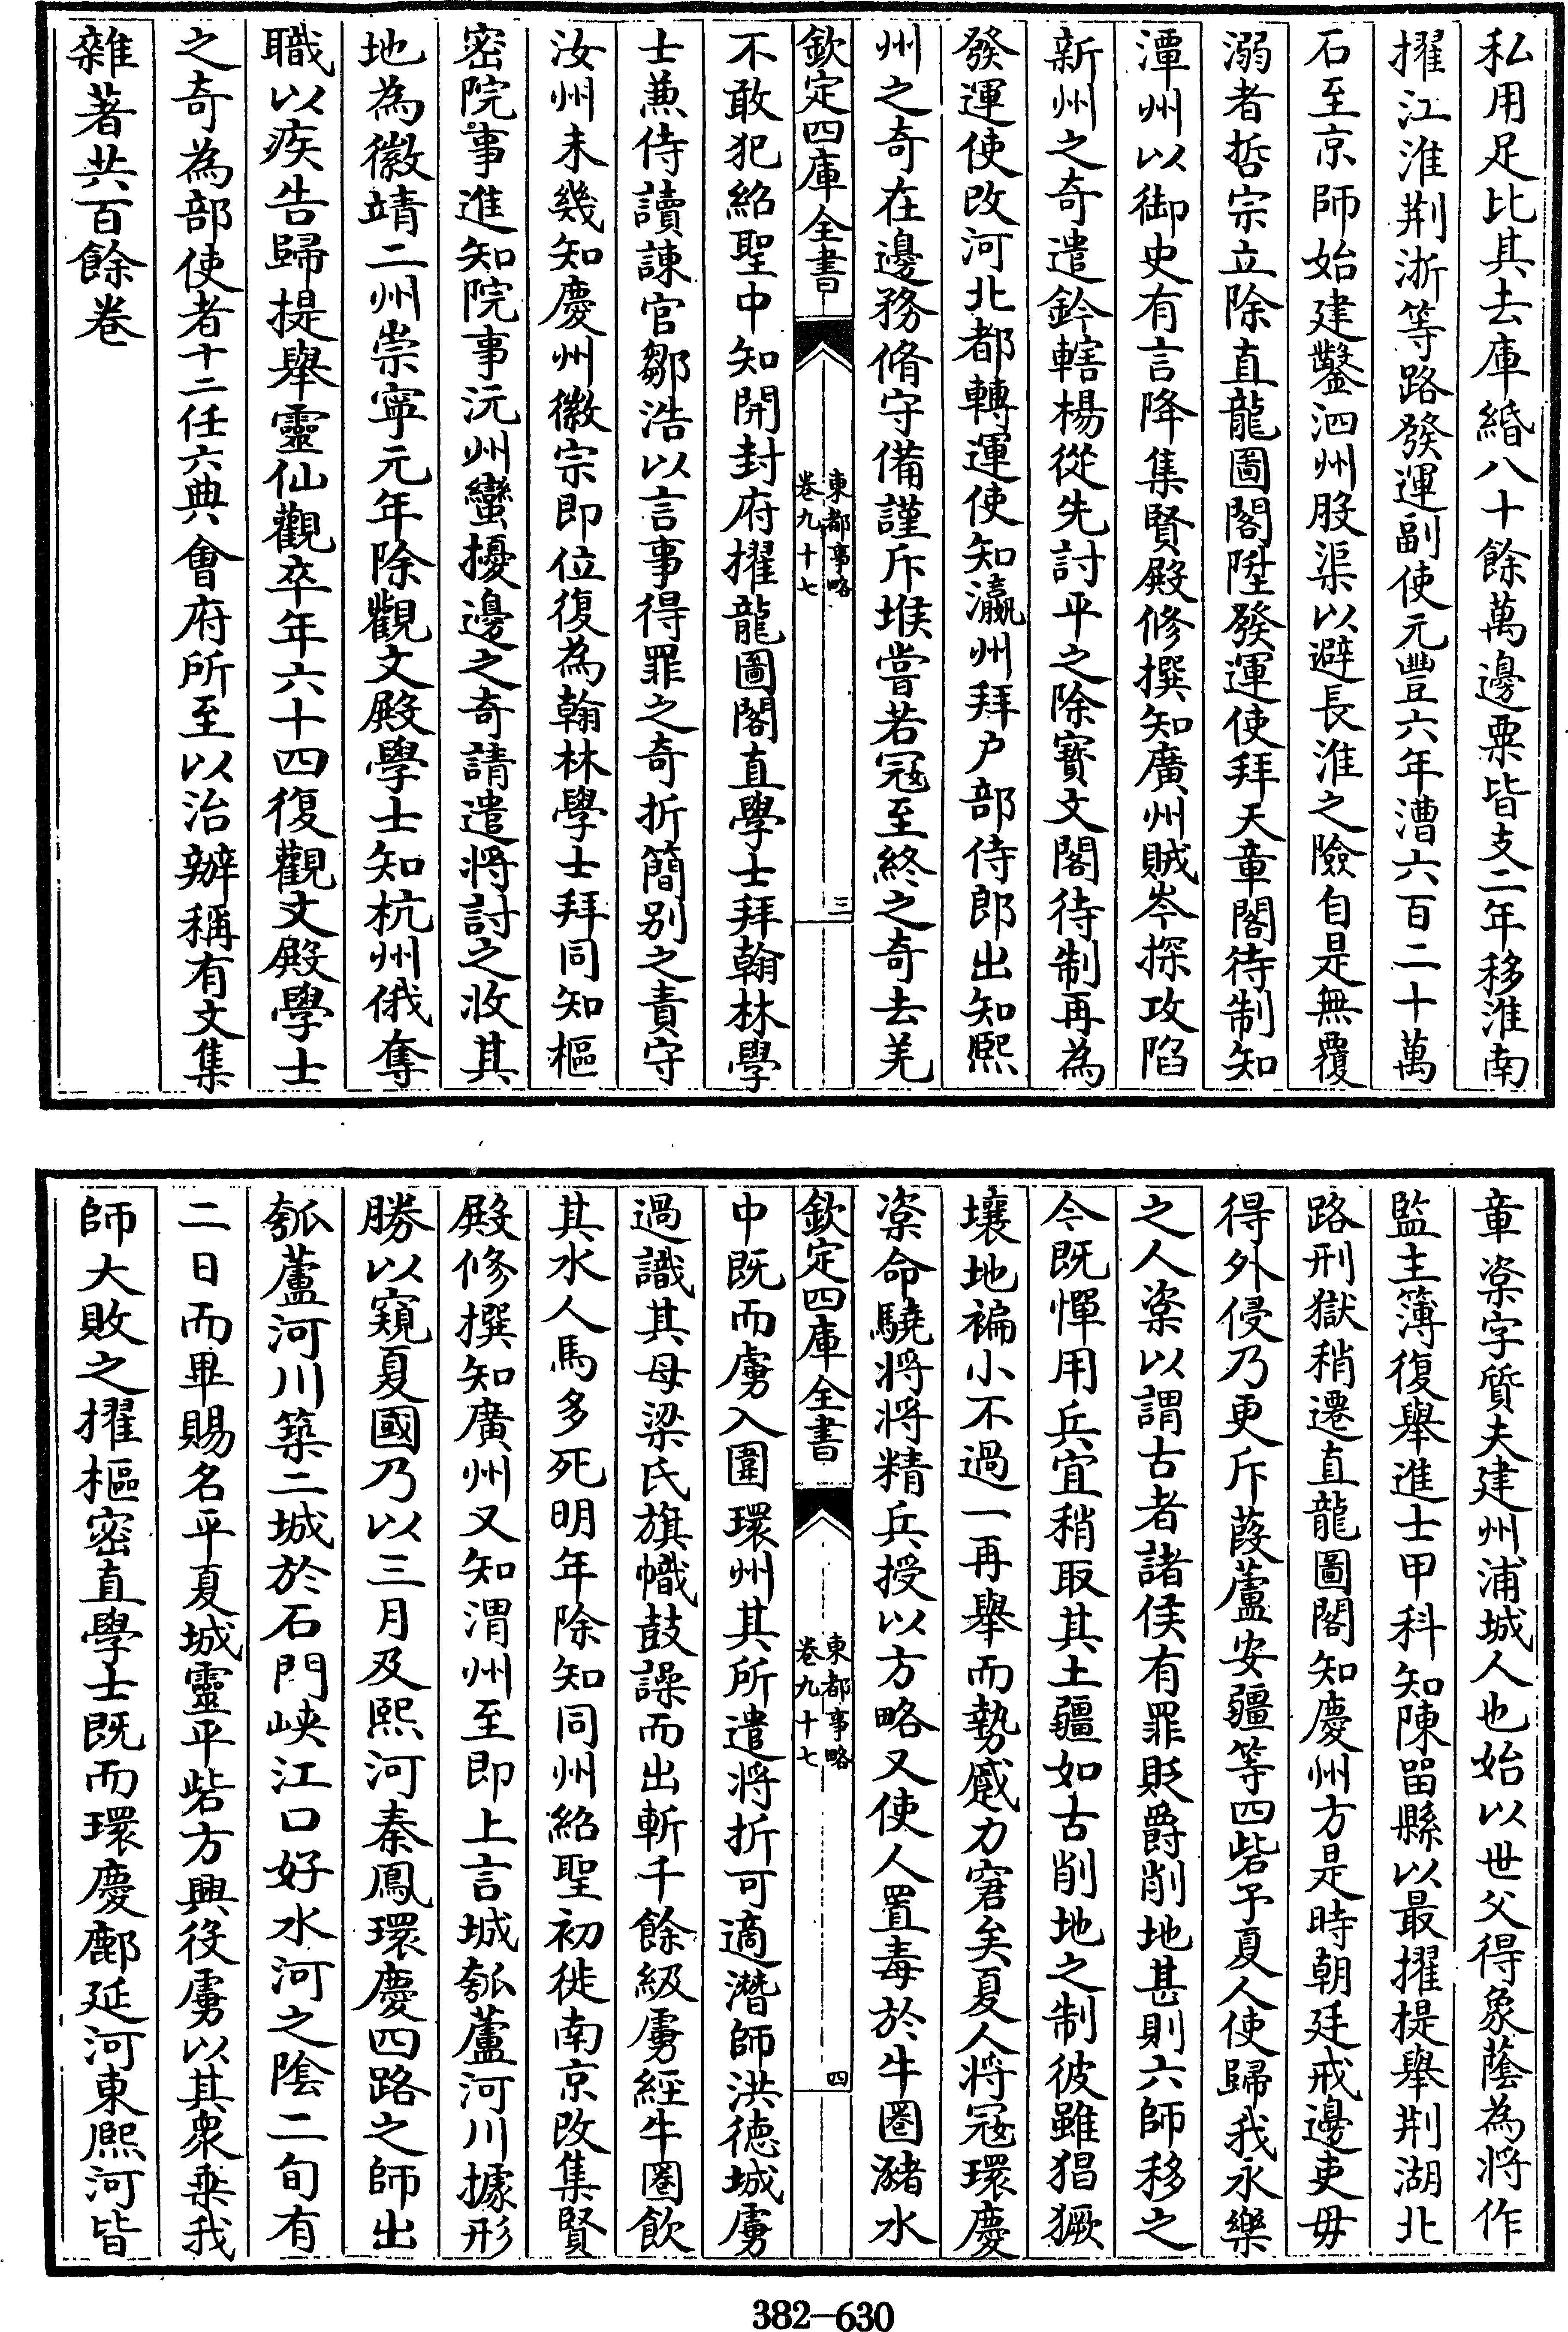 私用足比其去庫緡八十餘萬邊粟皆支二年移淮南
擢江淮荆浙等路發運副使元豐六年漕六百二十萬
石至京師始建鑿泗州股渠以避長淮之險自是無覆
溺者哲宗立除直龍圖閣陞發運使拜天章閣待制知
潭州以御史有言降集賢殿修撰知廣州賊岑探攻陷
新州之奇遣鈐轄楊從先討平之除寳文閣待制再為
發運使改河北都轉運使知瀛州拜户部侍郎出知熙
州之奇在邊務脩守備謹斥堠嘗若冦至終之奇去羌
欽定四庫全書
東都事略
卷九十七
三
不敢犯紹聖中知開封府擢龍圖閣直學士拜翰林學
士兼侍讀諫官鄒浩以言事得罪之奇折簡别之責守
汝州未幾知慶州徽宗即位復為翰林學士拜同知樞
密院事進知院事沅州蠻擾邊之奇請遣將討之收其
地為徽靖二州崇寧元年除觀文殿學士知杭州俄奪
職以疾告歸提舉靈仙觀卒年六十四復觀文殿學士
之奇為部使者十二任六典會府所至以治辦稱有文集
雜著共百餘卷
章楶字質夫建州浦城人也始以世父得象蔭為將作
監主簿復舉進士甲科知陳留縣以最擢提舉荆湖北
路刑獄稍遷直龍圖閣知慶州方是時朝廷戒邊吏毋
得外侵乃更斥葭蘆安疆等四砦予夏人使歸我永樂
之人楶以謂古者諸侯有罪貶爵削地甚則六師移之
今既憚用兵宜稍取其土疆如古削地之制彼雖猖獗
壤地褊小不過一再舉而勢蹙力窘矣夏人將冦環慶
楶命驍將將精兵授以方略又使人置毒於牛圈瀦水
欽定四庫全書
東都事略
卷九十七
四
中既而虜入圍環州其所遣將折可適潛師洪德城虜
過識其母梁氏旗幟鼓譟而出斬千餘級虜經牛圈飲
其水人馬多死明年除知同州紹聖初徙南京改集賢
殿修撰知廣州又知渭州至即上言城瓠蘆河川據形
勝以窺夏國乃以三月及熙河秦鳳環慶四路之師出
瓠蘆河川築二城於石門峽江口好水河之陰二旬有
二日而畢賜名平夏城靈平砦方興役虜以其衆乘我
師大敗之擢樞密直學士既而環慶鄜延河東熙河皆
382-630